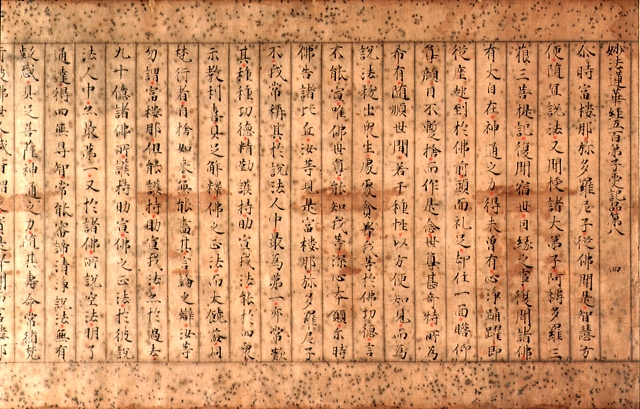 妙法蓮華經五百弟子受記品第八　四
尒時富樓那弥多羅尼子從佛聞是智慧方
便隨宜說法又聞授諸大弟子阿耨多羅三
藐三菩提記復聞宿世因緣之事復聞諸佛
有大自在神通之力得未曾有心淨踊躍即
從座起到於佛前頭面礼足却住一面瞻仰
尊顏目不暫捨而作是念世尊甚奇特所為
希有隨順世間若干種性以方便知見而為
說法拔出眾生處處貪著我等於佛功德言
不能宣唯佛世尊能知我等深心本願尒時
佛告諸比丘汝等見是富樓那弥多羅尼子
不我常稱其於說法人中最為第一亦常歎
其種種功德精勤護持助宣我法能於四眾
示教利喜具足解釋佛之正法而大饒益同
梵行者自捨如來無能盡其言論之辯汝等
勿謂富樓那但能護持助宣我法亦於過去
九十億諸佛所護持助宣佛之正法於彼說
法人中亦最第一又於諸佛所說空法明了
通達得四無㝵智常能審諦清淨說法無有
疑惑具足菩薩神通之力隨其壽命常修梵